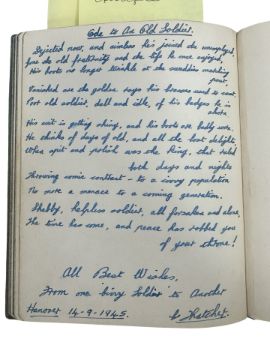 Ode to An Old Soldier.
Dejected now, and aimless he joined the unemployed
from the old fraternity and the life he once enjoyed,
His boots no longer twinkle at the sundries
past,
Vanished are the golden rays his brasses used to cast.
Poor old soldier, dull and idle, of his badges he is
short.
His suit is getting shiny, and his boots are badly worn,
He thinks of days of old, and all the boot delight
When spit and polish was the King, that ruled
both days and nights
Throwing comic contrast - to a civvy population
No more a menace to a coming generation.
Shabby, helpless soldier, all forsaken and alone,
The time has come, and peace has robbed you
of your throne!
All Best Wishes,
From one 'Civvy Soldier' to Another
Hanover 14-9-1945. Thatcher.